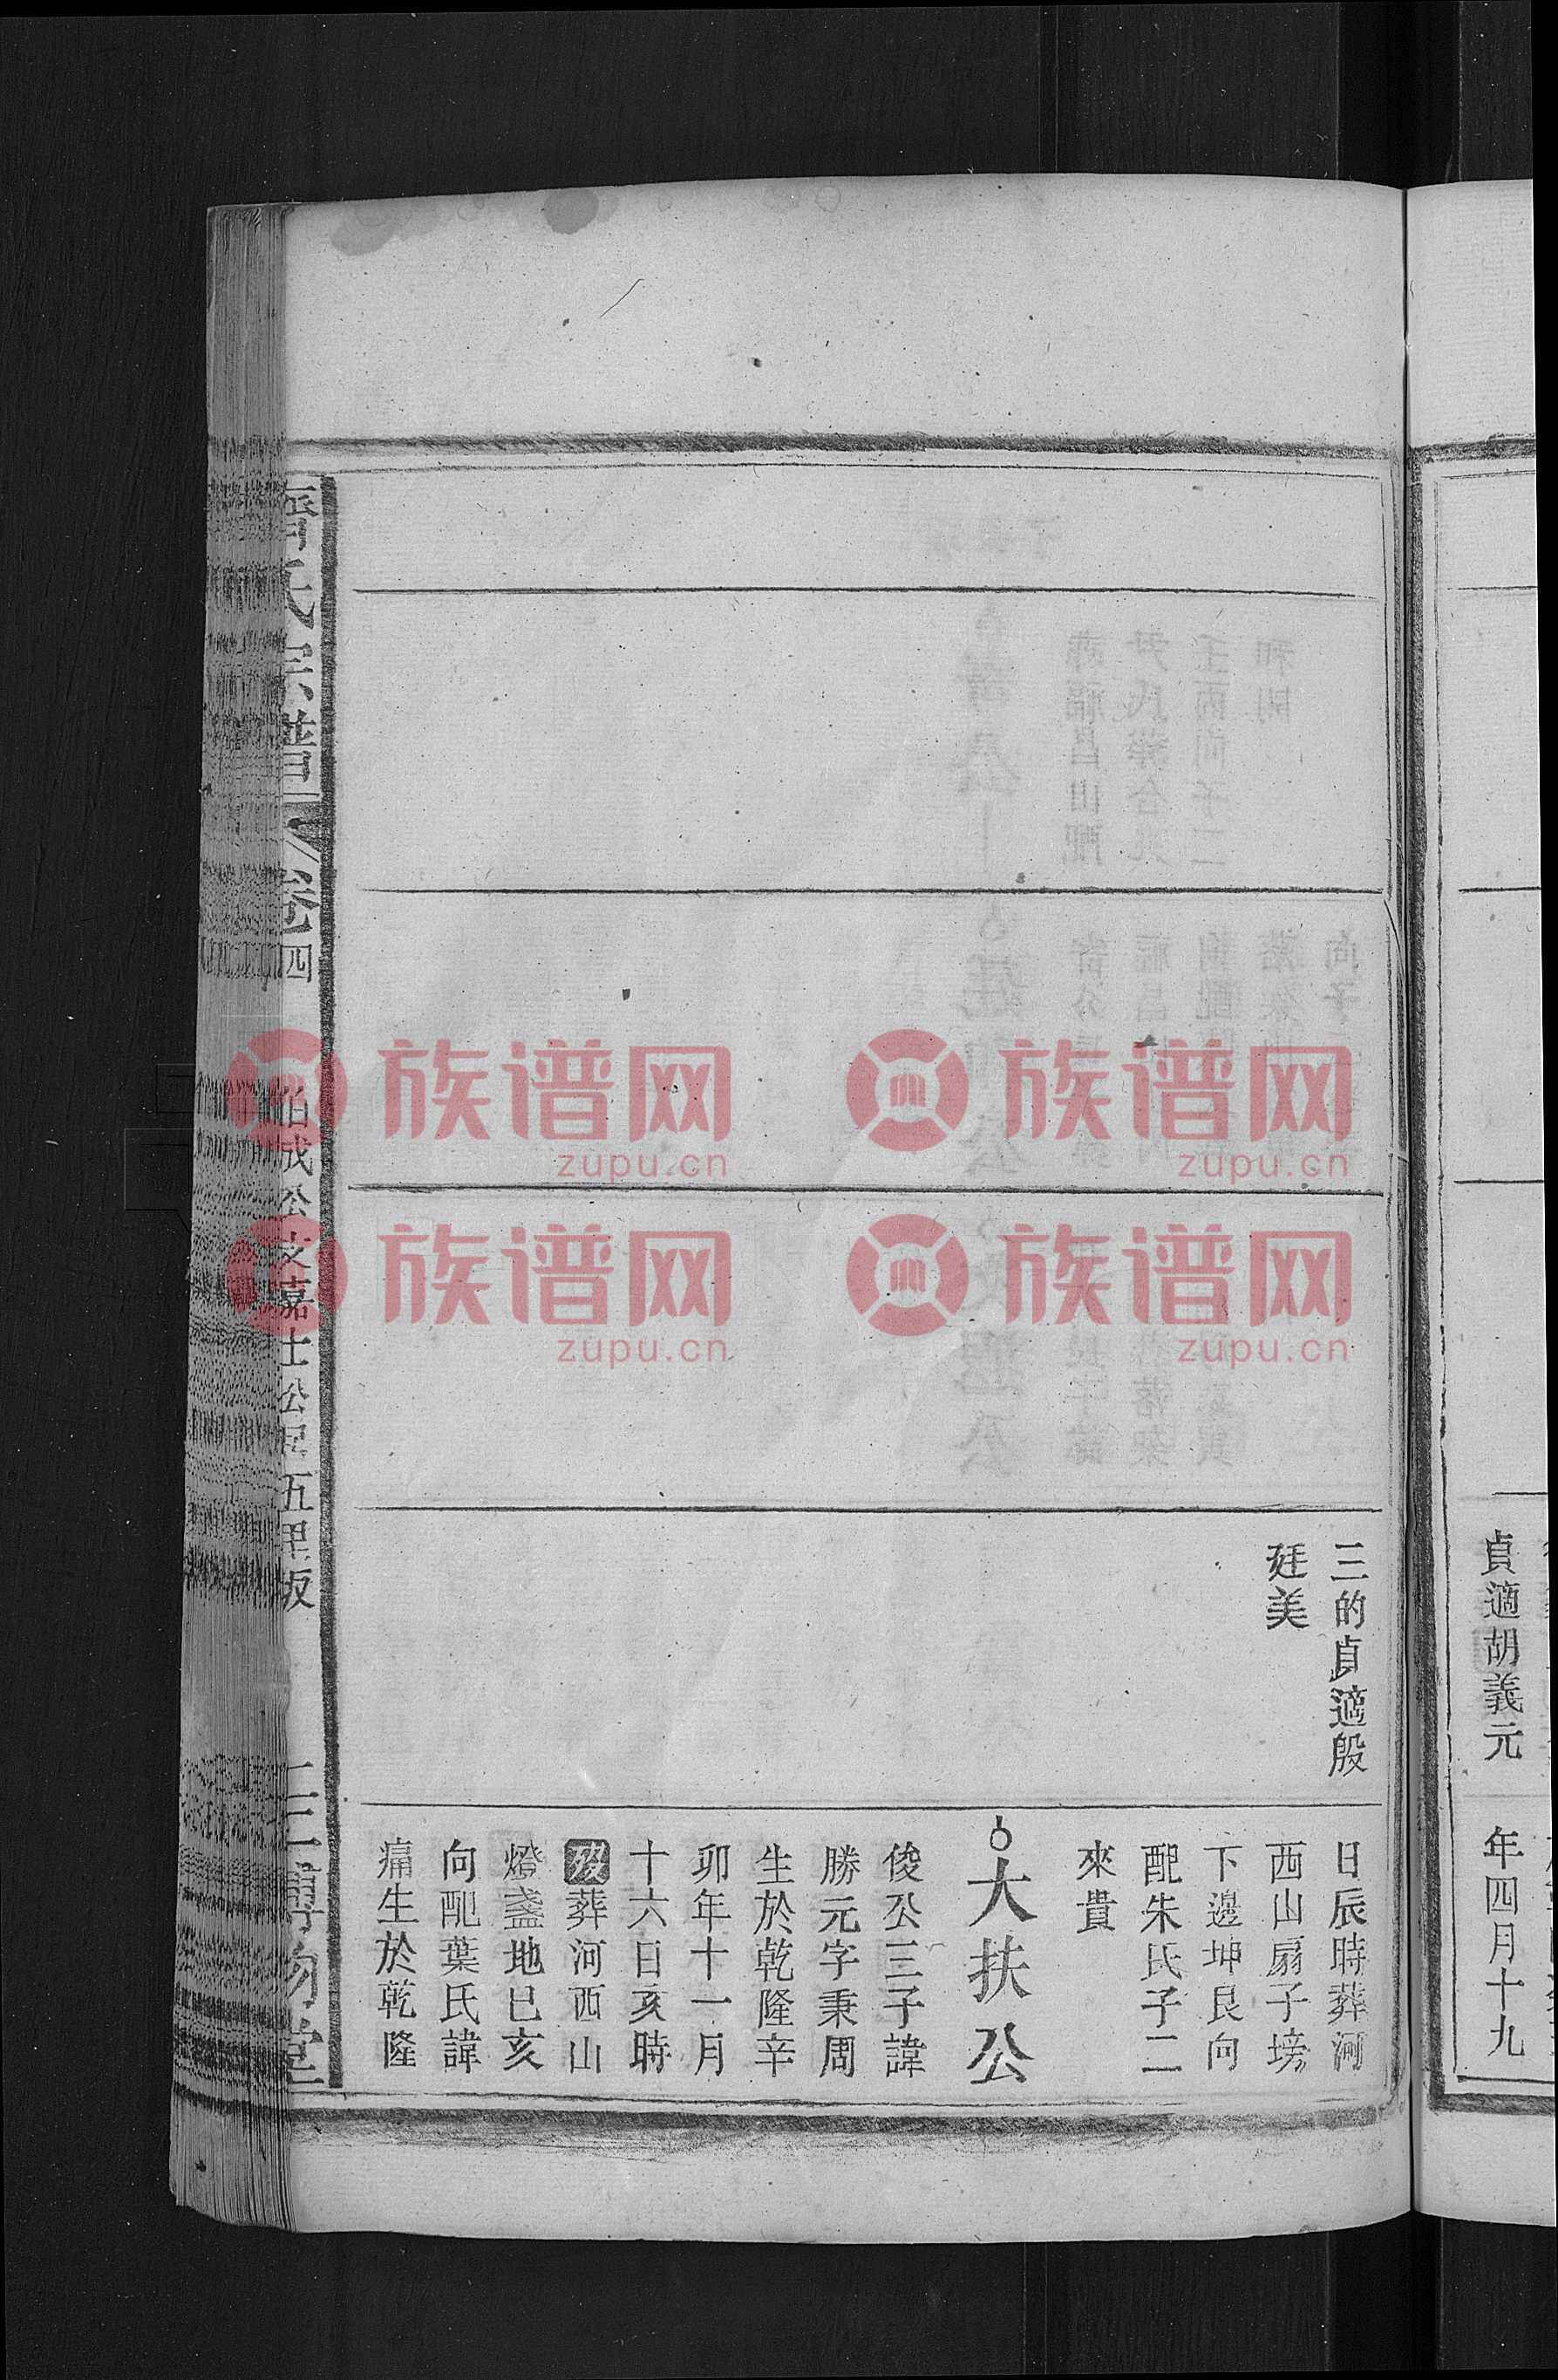 年四月十九
貞適胡義元
三的貞適殷
廷美
日辰時葬河
西山扇子塝
下邊坤艮向
配朱氏子二
來貴
大扶公
俊公三子諱
勝元字秉周
生於乾隆辛
卯年十一月
十六日亥時
歿葬河西山
燈盞地巳亥
向配葉氏諱
痛生於乾隆
氏宗譜
卷四
伯成公支嘉士公居五里坂
族谱网
zupu.cn
族谱网
zupu.cn
族谱网
zupu.cn
族谱网
zupu.cn